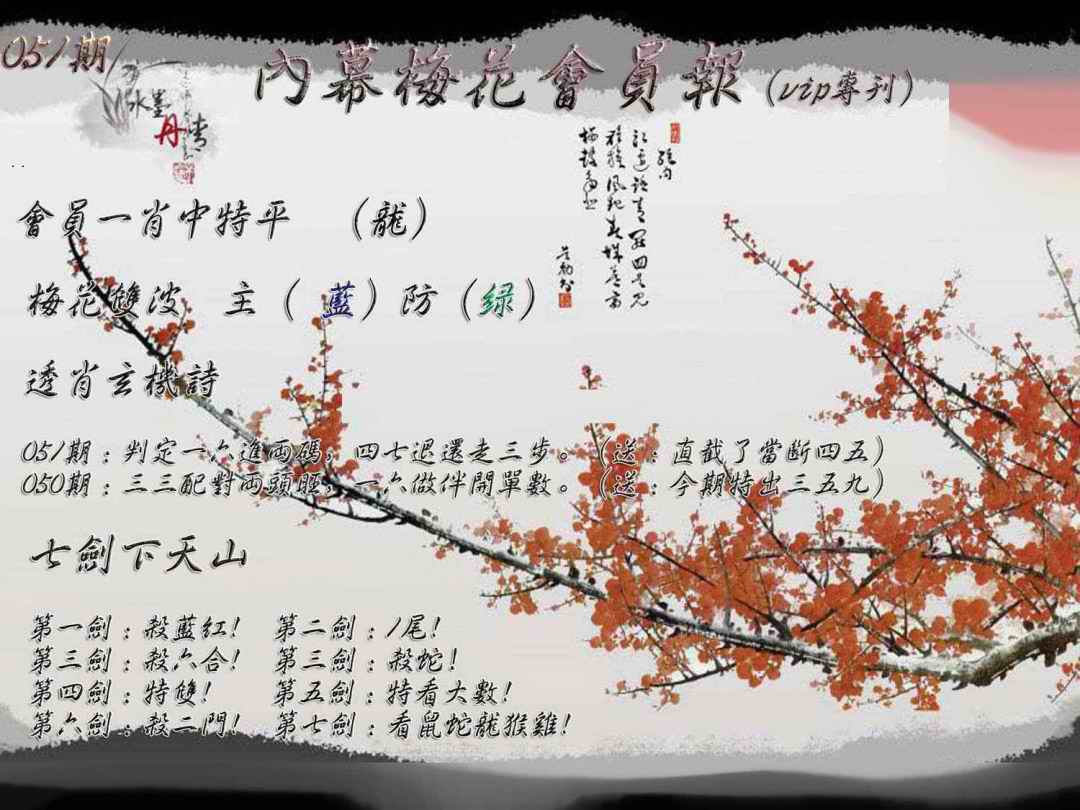 051期
內幕梅花會員報(vip專刊)
水墨
丹青
會員一肖中特平 (龍)
梅花雙波 主(藍)防(緑)
透肖玄機詩
051期:判定一六進両碼,四七退還走三步。(送:直截了當斷四五)
050期:三三配對両頭旺,一六做伴開單數。(送:今期特出三五九)
七劍下天山
第一劍:殺藍紅! 第二劍:1尾!
第三劍:殺六合! 第三劍:殺蛇!
第四劍:特雙! 第五劍:特看大數!
第六劍:殺二門! 第七劍:看鼠蛇龍猴雞!